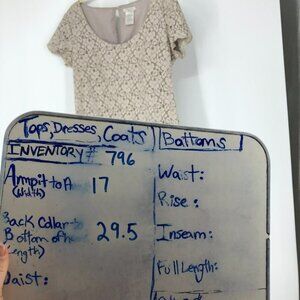 Tops, Dresses, Coats
INVENTORY # 796
Armpit to A 17
(width)
Back Collar to
Bottom of he 29.5
(length)
Waist:
Bottoms
Waist:
Rise:
Inseam:
Full Length: